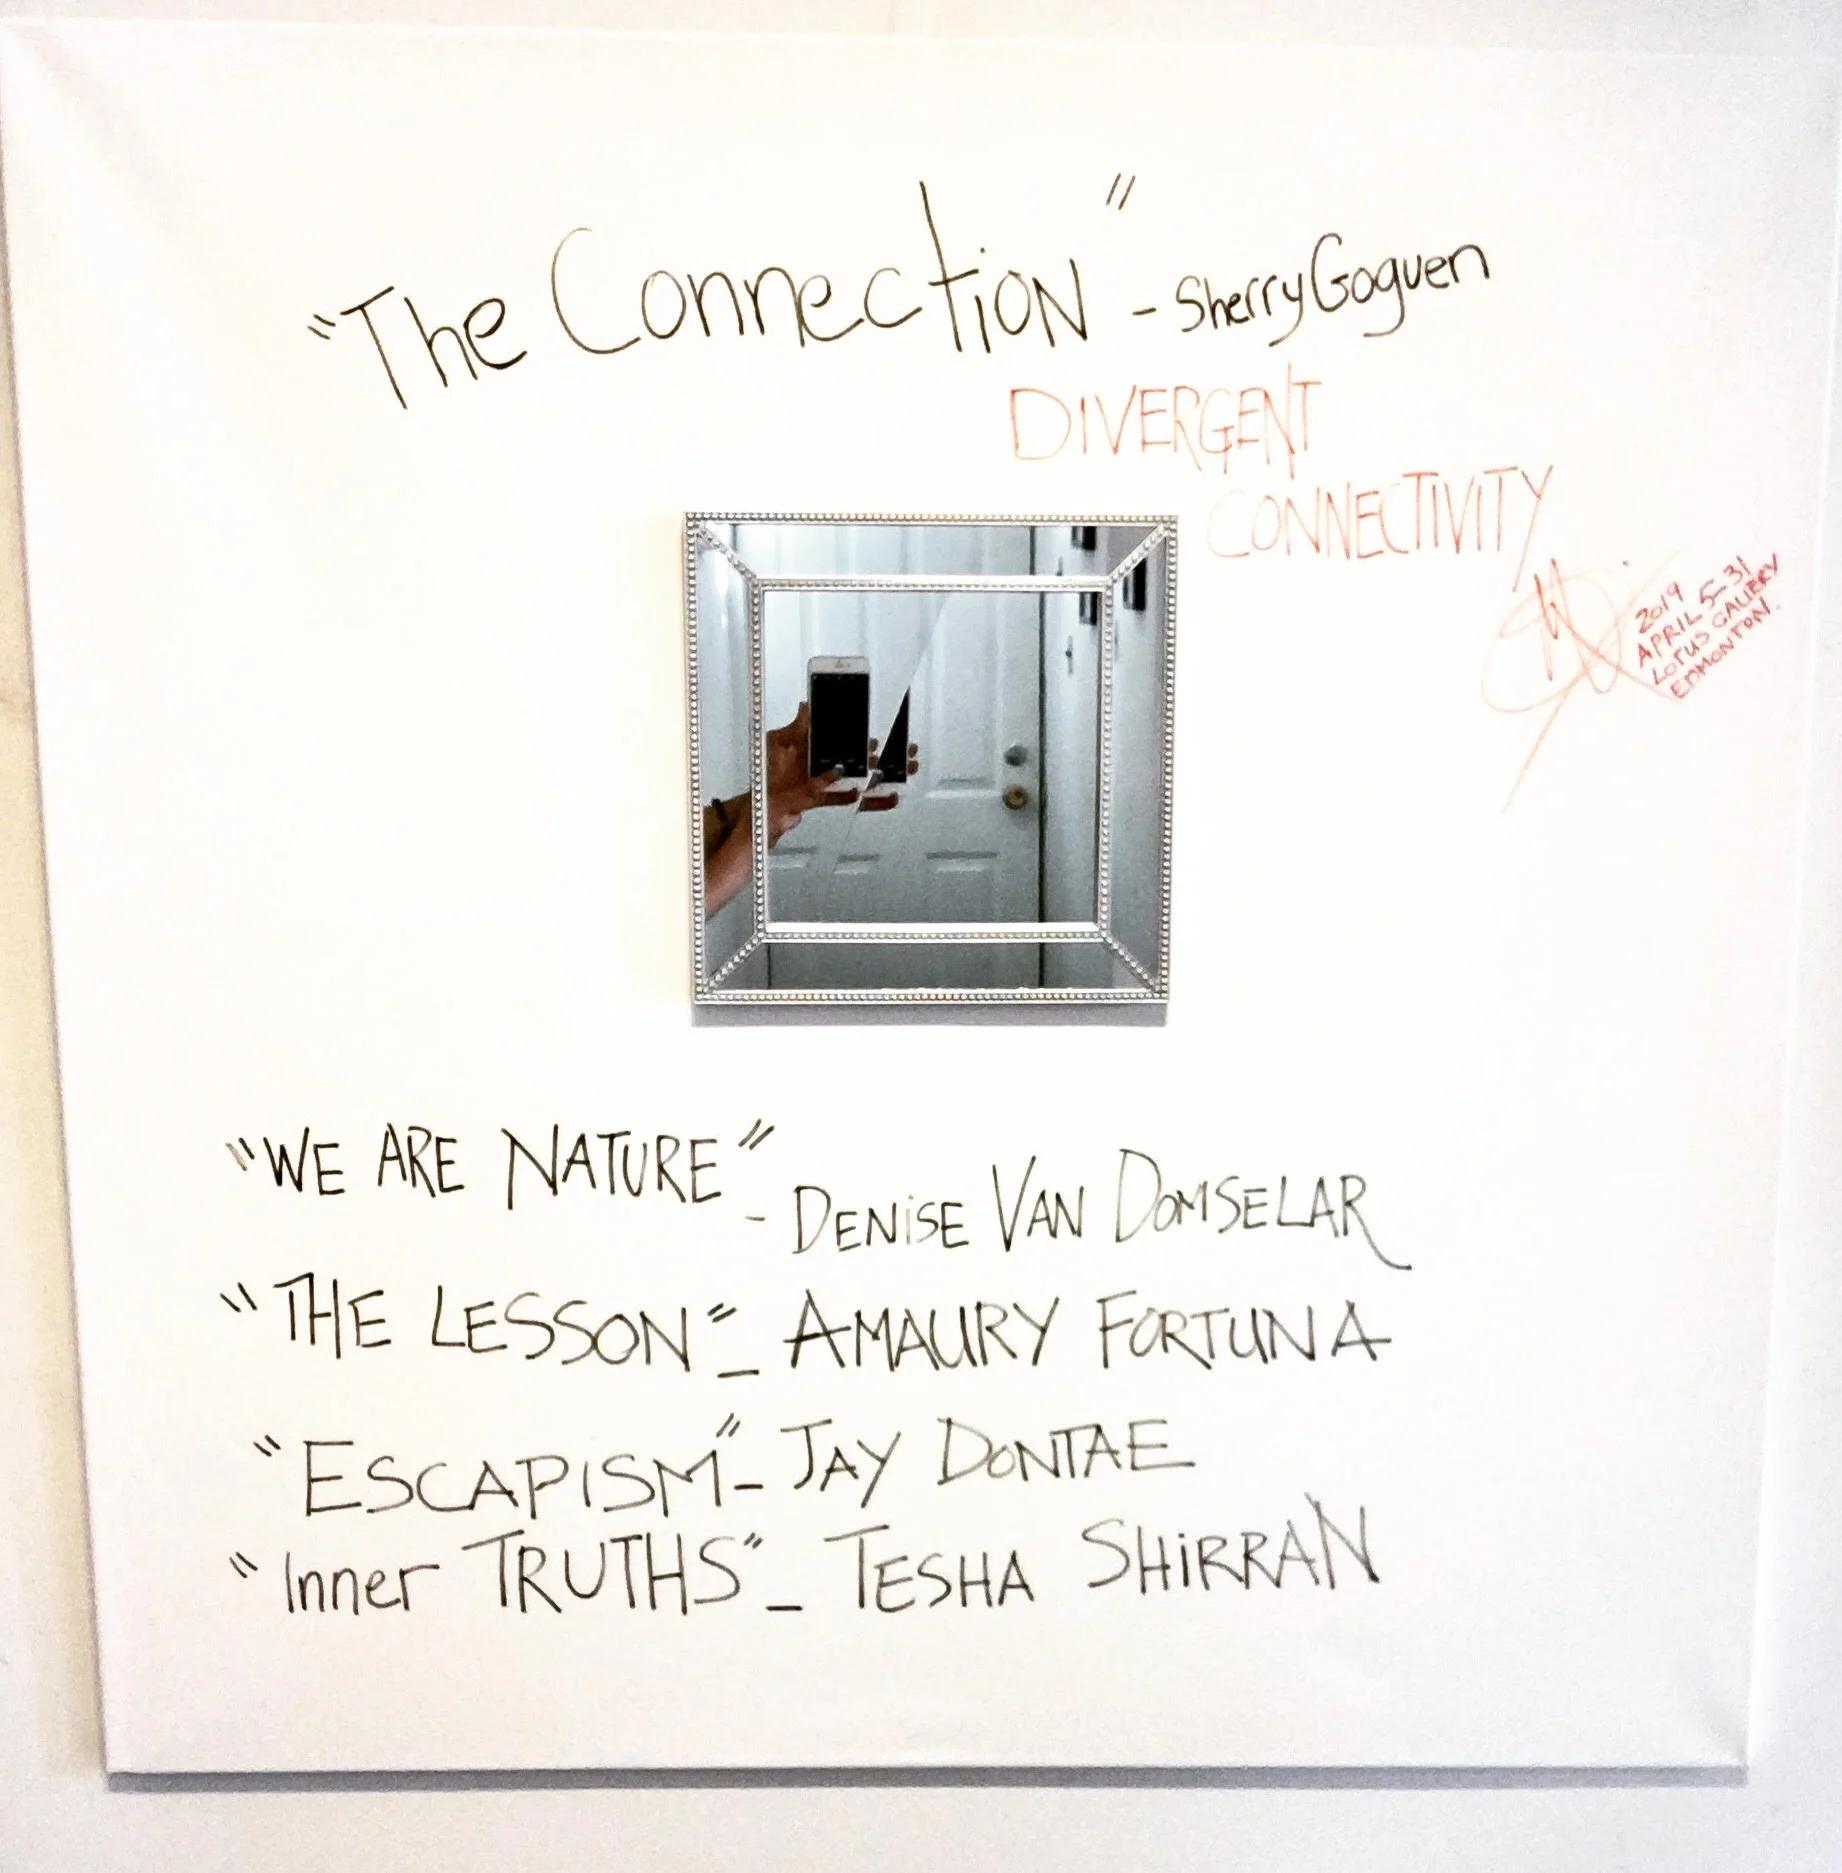 "The Connection" - Sherry Goguen
DIVERGENT
CONNECTIVITY
2019
APRIL 5-31
LOTUS GALLERY
EDMONTON.
"WE ARE NATURE"
- DENISE VAN DOMSELAR
"THE LESSON" - AMAURY FORTUNA
"ESCAPISM" - JAY DONTAE
"Inner TRUTHS" - TESHA SHIRRAN